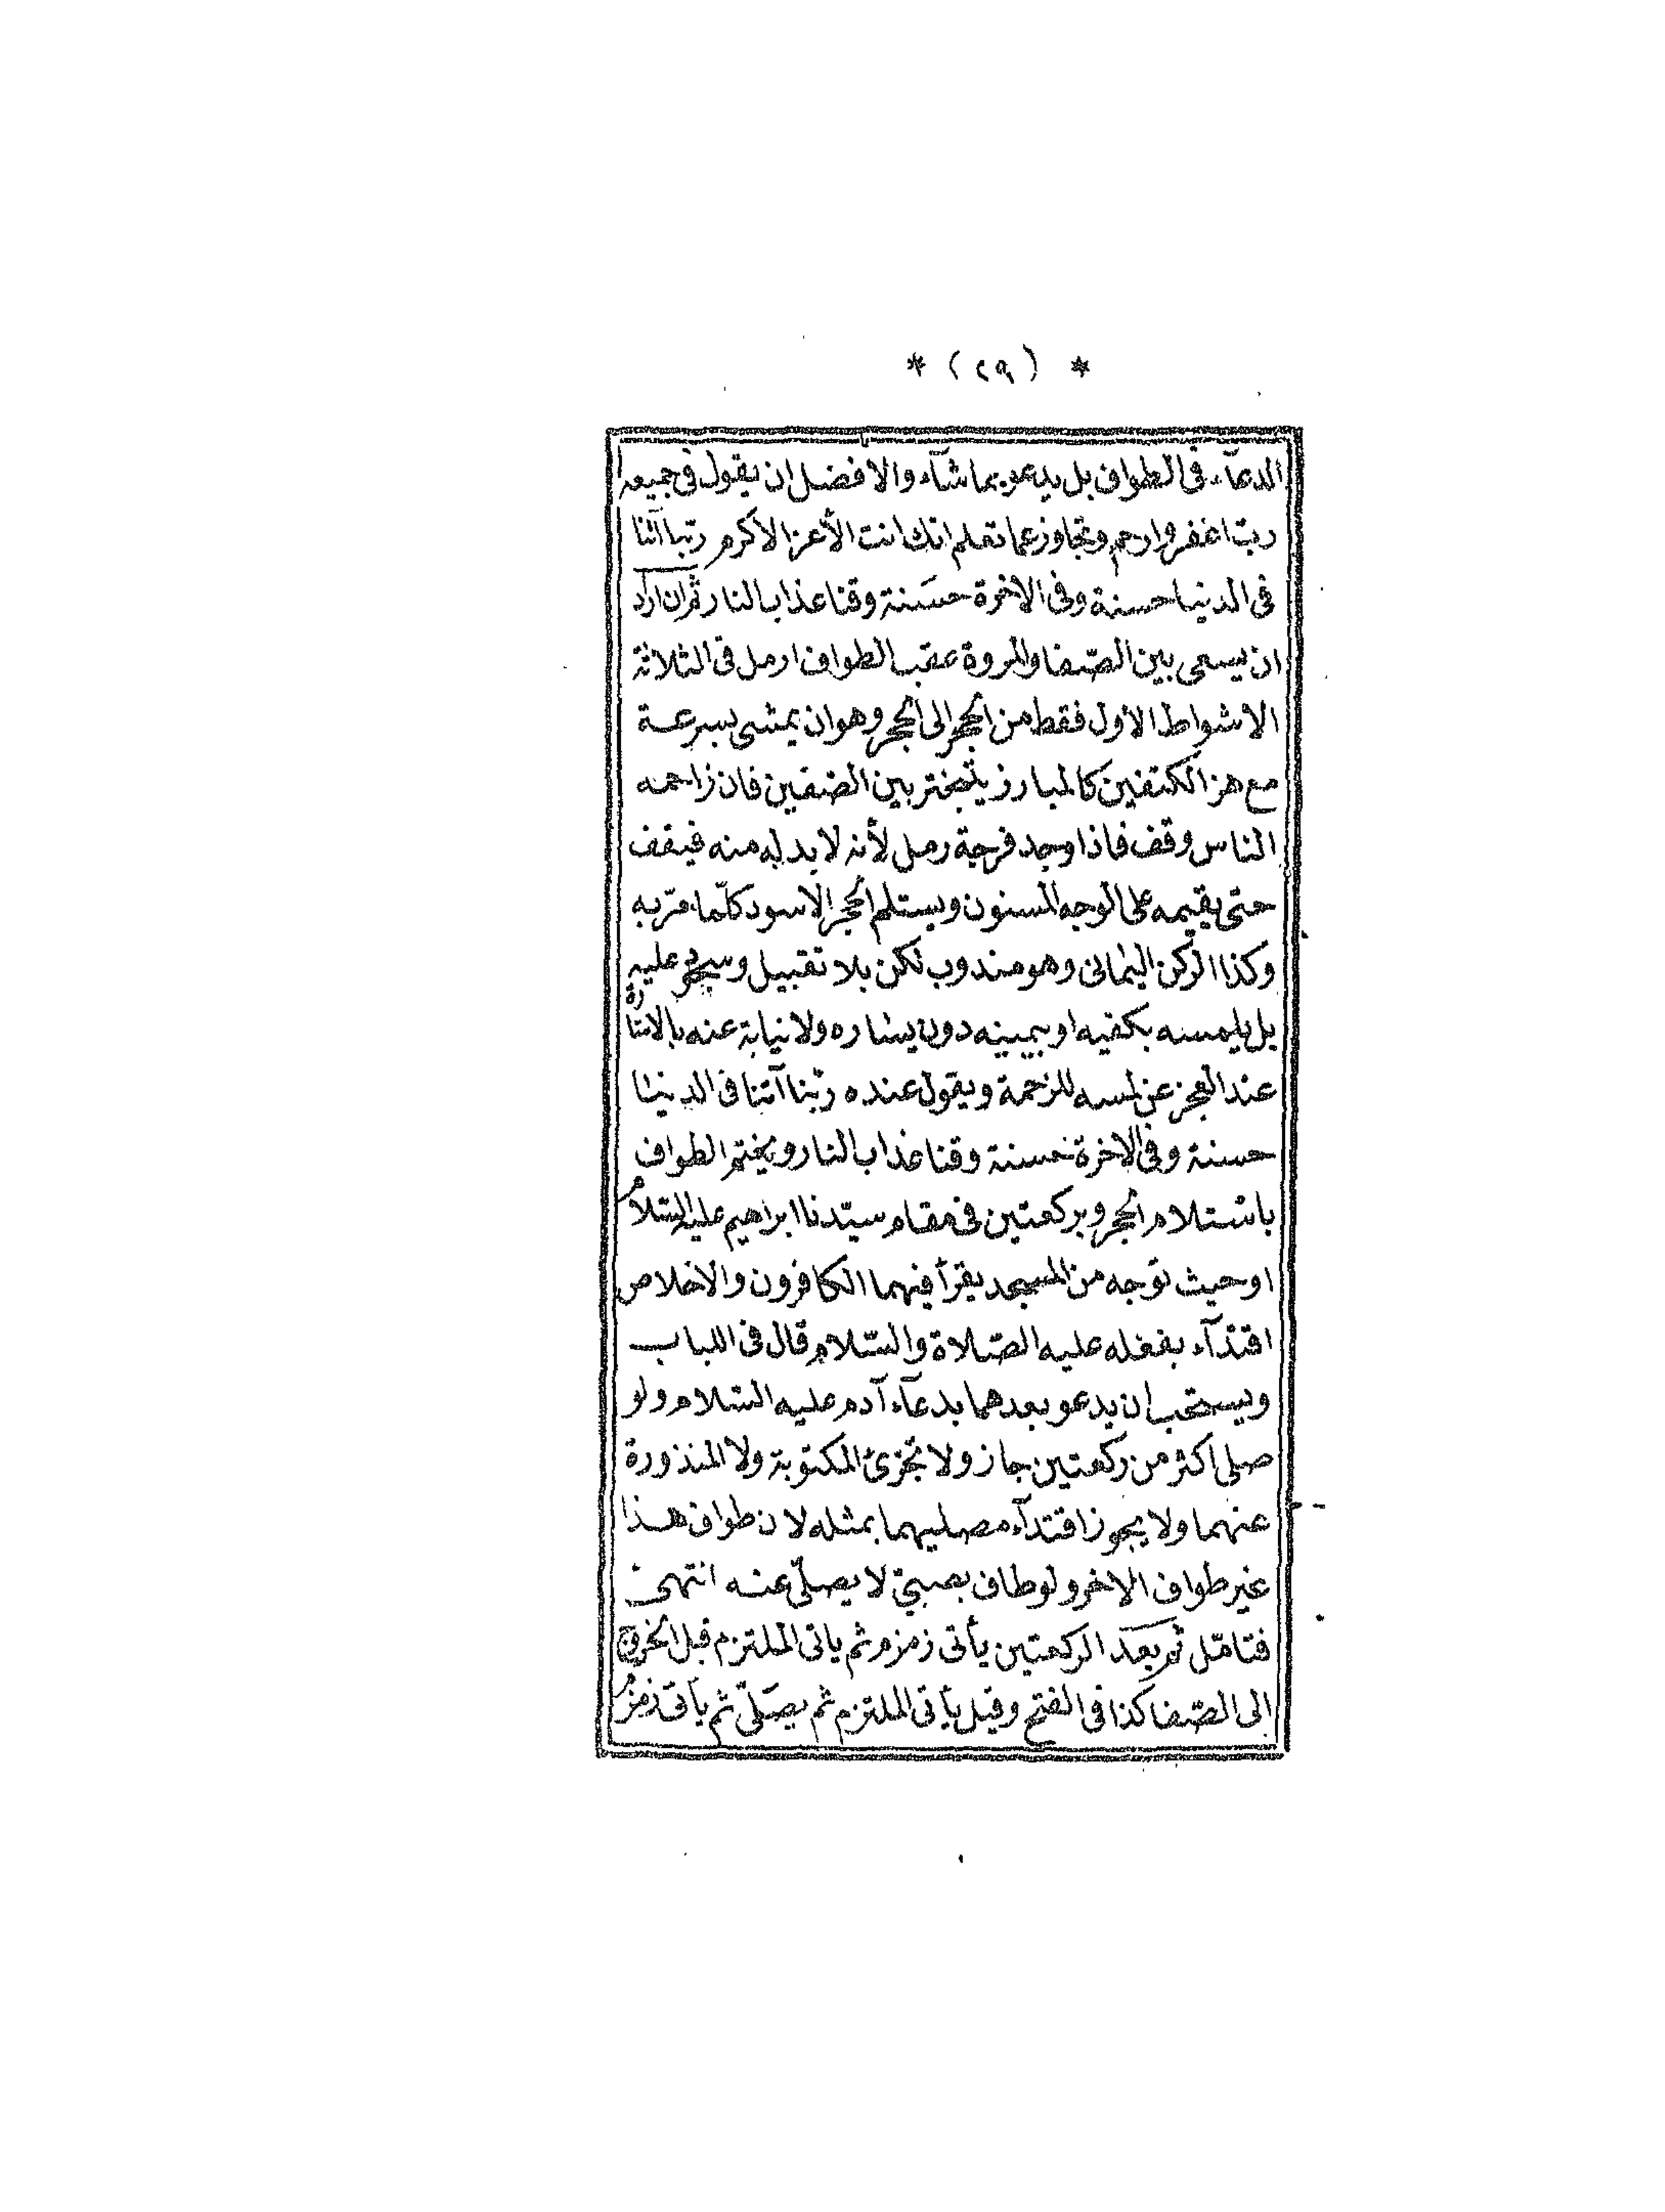 * (٢٩) *
الدعآء فى الطواف بل يدعو بما شآء والافضل ان يقول فى جميعه
رب اغفر وارحم وتجاوز عما تعلم انك انت الأعز الاكرم ربنا آتنا
فى الدنيا حسنة وفى الاخرة حسنة وقنا عذاب النار ثم ان اراد
ان يسعى بين الصفا والمروة عقب الطواف ارمل فى الثلاثة
الاشواط الاول فقط من الحجر الى الحجر وهو ان يمشى بسرعة
مع هز الكتفين كالمبارز يتبختر بين الصفين فان زاحمه
الناس وقف فاذا وجد فرجة رمل لأنه لا بد له منه فيقف
حتى يقيمه على الوجه المسنون ويستلم الحجر الاسود كلّما مرّ به
وكذا الركن اليمانى وهو مندوب لكن بلا تقبيل وسجود عليه
بل يلمسه بكفيه او بيمينه دون يساره ولا نيابة عنه بالاشارة
عند العجز عن لمسه للزحمة ويقول عنده ربنا آتنا فى الدنيا
حسنة وفى الاخرة حسنة وقنا عذاب النار ويختم الطواف
باستلام الحجر وبركعتين فى مقام سيّدنا ابراهيم عليه السّلام
او حيث توجه من المسجد يقرأ فيهما الكافرون والاخلاص
اقتدآء بفعله عليه الصّلاة والسّلام قال فى اللباب
ويستحب ان يدعو بعدهما بدعآء آدم عليه السّلام ولو
صلى اكثر من ركعتين جاز ولا تجزئ المكتوبة ولا المنذورة
عنهما ولا يجوز اقتدآء مصليهما بمثله لان طواف هذا
غير طواف الاخر ولو طاف بصبىّ لا يصلّى عنه انتهى
فتامّل ثم بعد الركعتين يأتى زمزم ثم ياتى الملتزم قبل الخروج
الى الصّفا كذا فى الفتح وقيل يأتى الملتزم ثم يصلّى ثم يأتى زمزم